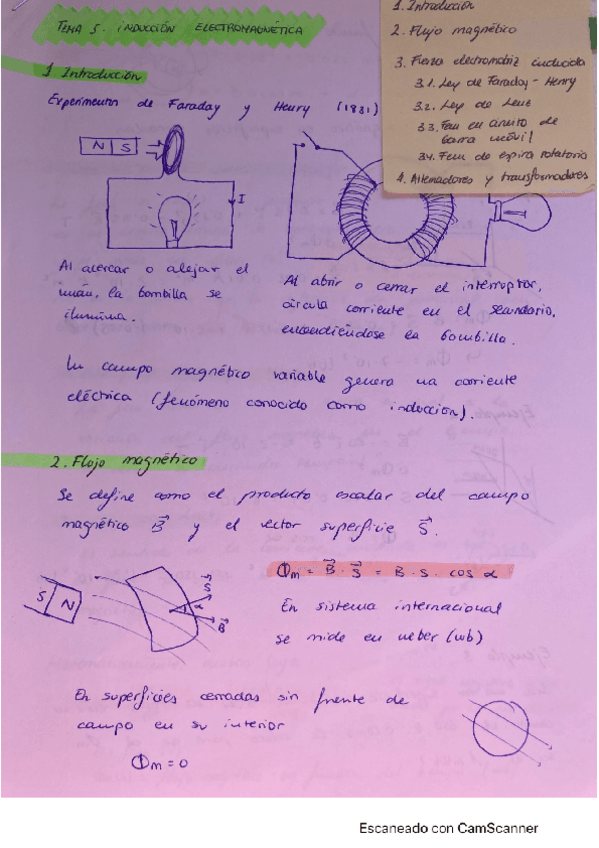 TEMA 5. INDUCCIÓN ELECTROMAGNÉTICA
1. Introducción
2. Flujo magnético
3. Fuerza electromotriz inducida
3.1. Ley de Faraday - Henry
3.2. Ley de Lenz
3.3. Fem en circuito de
barra móvil
3.4. Fem de espira rotatoria
4. Alternadores y transformadores
1 Introducción
Experimentos de Faraday y Henry (1831)
N S
I
Al acercar o alejar el
imán, la bombilla se
ilumina.
Al abrir o cerrar el interruptor,
circula corriente en el secundario,
encendiéndose la bombilla.
Un campo magnético variable genera una corriente
eléctrica (fenómeno conocido como inducción).
2. Flujo magnético
Se define como el producto escalar del campo
magnético B⃗ y el vector superficie S⃗.
S N
S⃗
α
B⃗
Φm = B⃗ · S⃗ = B · S · cos α
En sistema internacional
se mide en weber (wb)
En superficies cerradas sin frente de
campo en su interior
Φm = 0
Escaneado con CamScanner